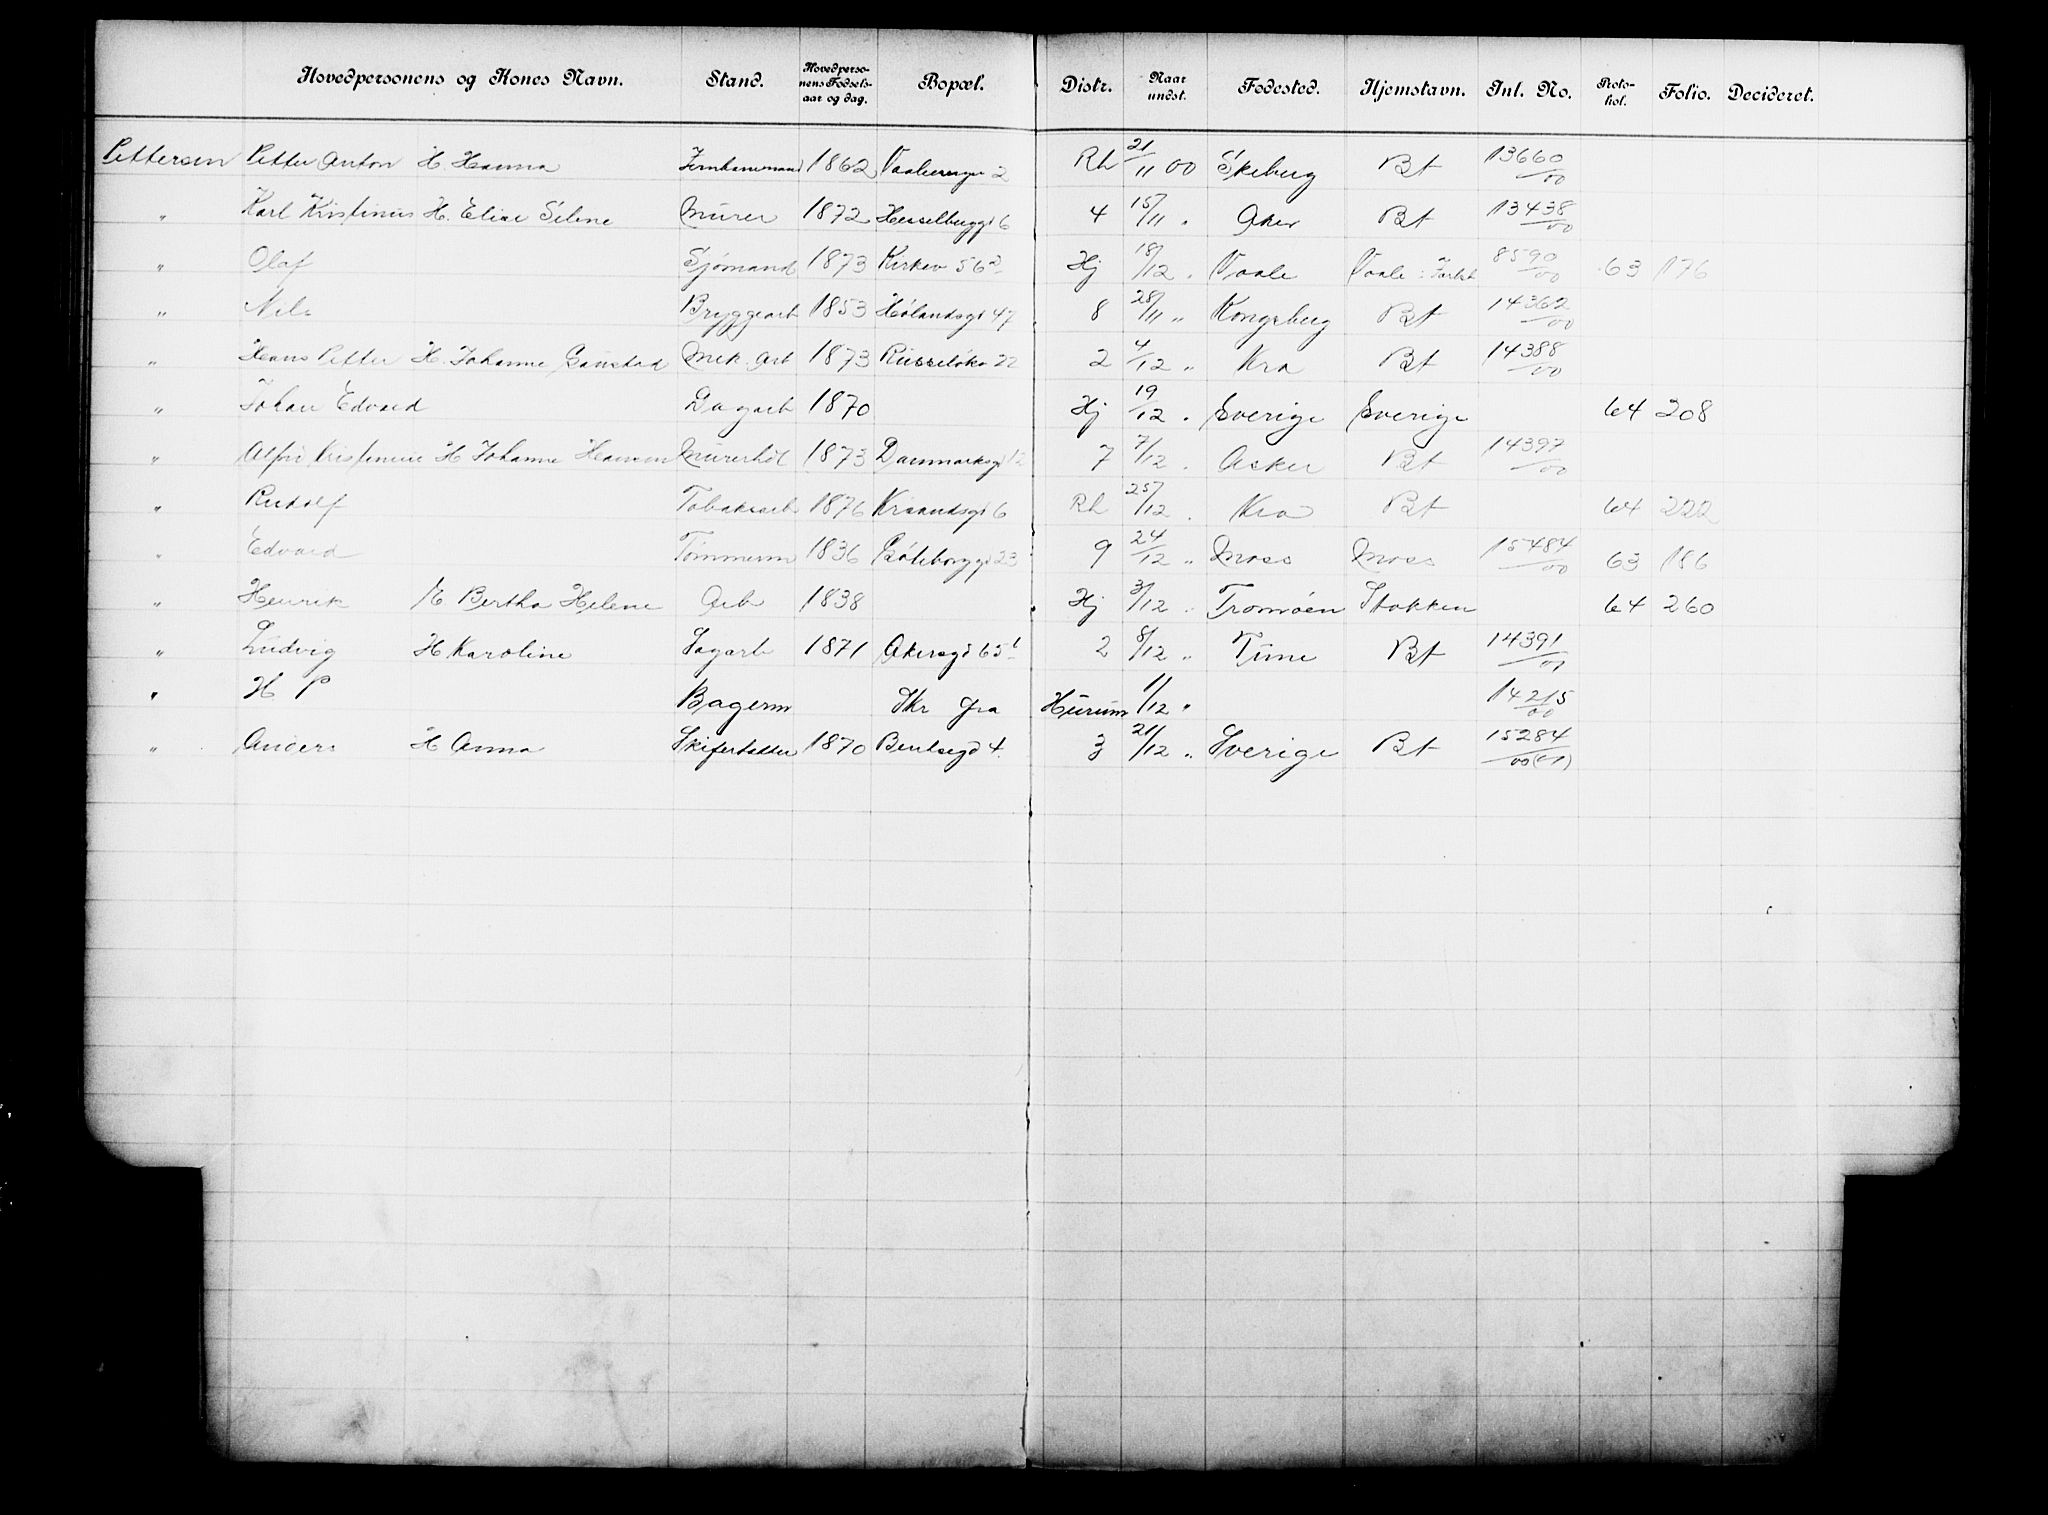 Hovedpersonens og Kones Navn. Stand. Hovedpersonens Fødselsaar og dag. Bopæl. Distr. Naar undst. Fødested. Hjemstavn. Inl. No. Protokol. Folio. Decideret.
Pettersen Petter Anton H. Hanna 1862 2 Rh 21/11 00 Skeberg Bt 13660/00
" Karl Kristinus H. Elise Seline Murer 1872 Hesselbergg 6 4 15/11 " Aker Bt 13438/00
" Olaf Sjømand 1873 Kirkev 56 Hj 18/12 " Vaale Vaale i Jarlsb 8590/00 63 176
" Nils Bryggearb 1853 Hølandsgd 47 8 28/11 " Kongsberg Bt 14362/00
" Hans Petter H. Johanne Gaustad Mek. Arb 1873 Russeløkv 22 2 4/12 " Kra Bt 14388/00
" Johan Edvard Dagarb 1870 Hj 19/12 " Sverige Sverige 64 208
" Alfr Kristinius H Johanne Hansen Murerhdt 1873 Danmarksgd 12 7 7/12 " Asker Bt 14397/00
" Rudolf Tobaksarb 1876 Krsandsgd 6 Rh 25/12 " Kra Bt 64 222
" Edvard Tømmerm 1836 Gøteborggd 23 9 24/12 " Moss Moss 15484/00 63 186
" Henrik E Bertha Helene Arb 1838 Hj 3/12 " Tromøen Stokken 64 260
" Ludvig H Karoline Sagarb 1871 Akersgd 65 b 2 8/12 " Time Bt 14391/01
" H P Bagerm Skr fra Hurum 1/12 " 14215/00
" Anders H Anna Skifertækker 1870 Bentsegd 4. 3 21/12 " Sverige Bt 15284/00(01)